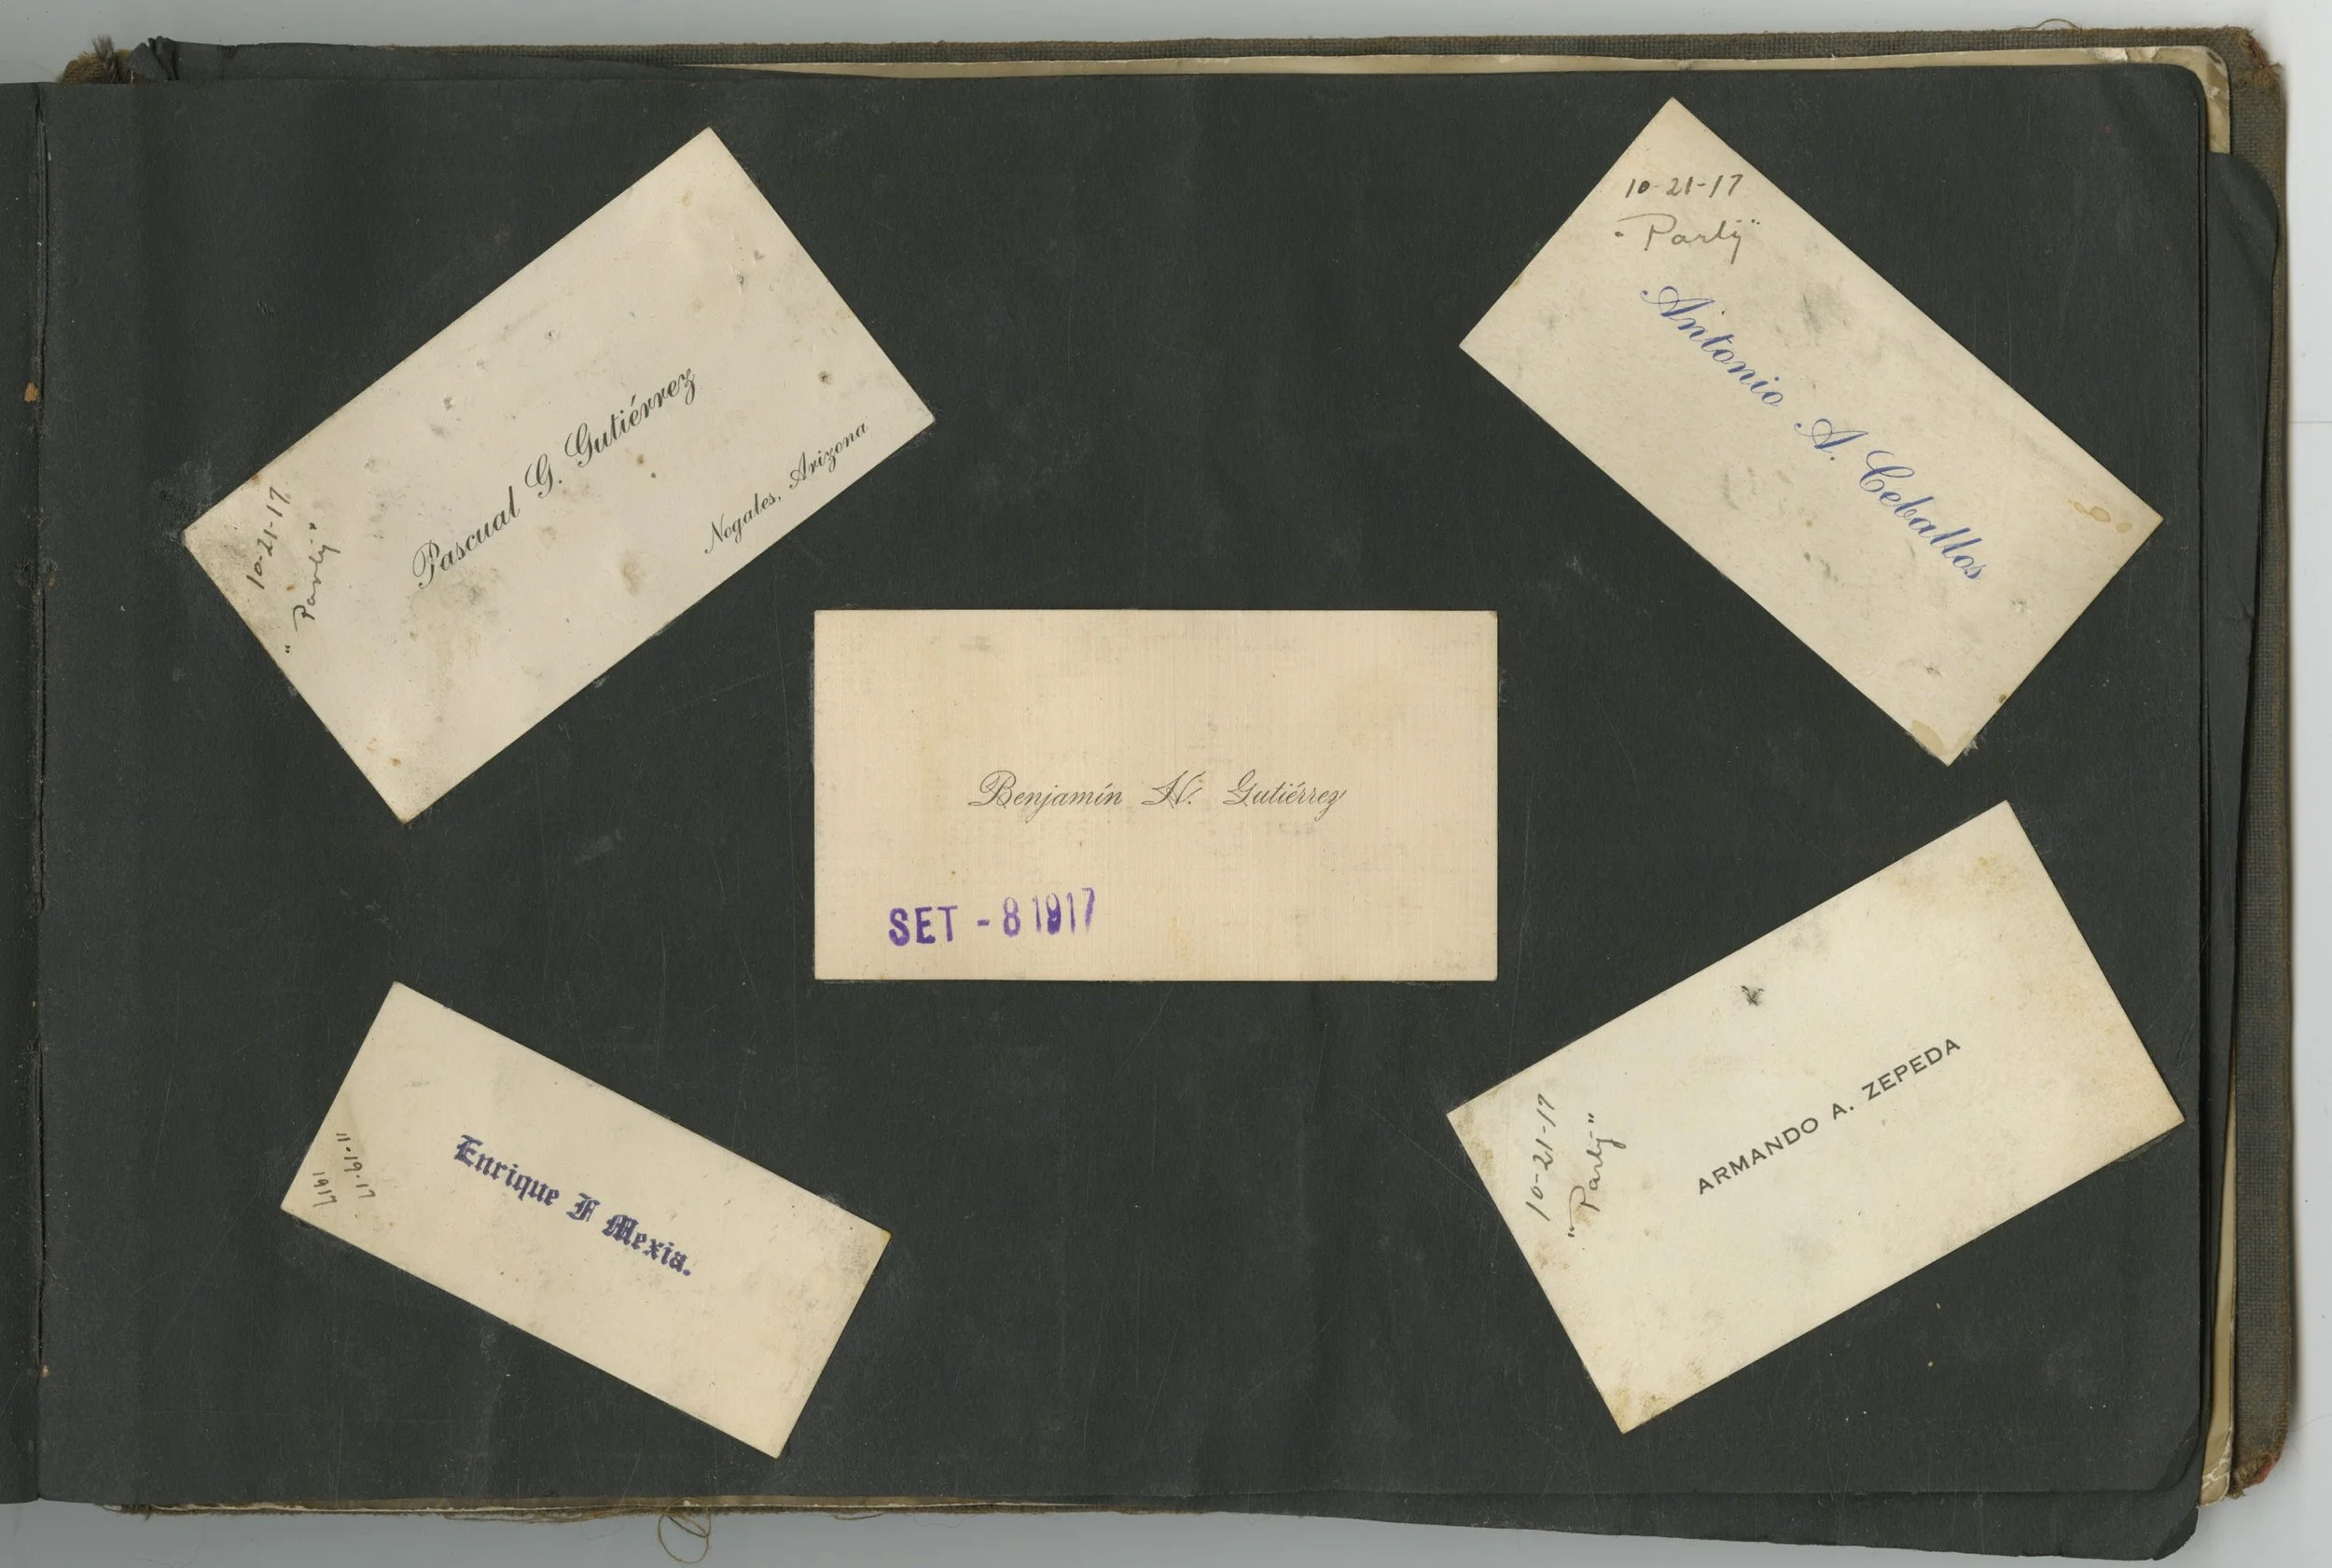 10-21-17
"Party"
Pascual G. Gutiérrez
Nogales, Arizona
10-21-17
"Party"
Antonio A. Ceballos
Benjamín Gutiérrez
SET - 8 1917
11-19-17
1917
Enrique F Mexia.
10-21-17
"Party"
ARMANDO A. ZEPEDA